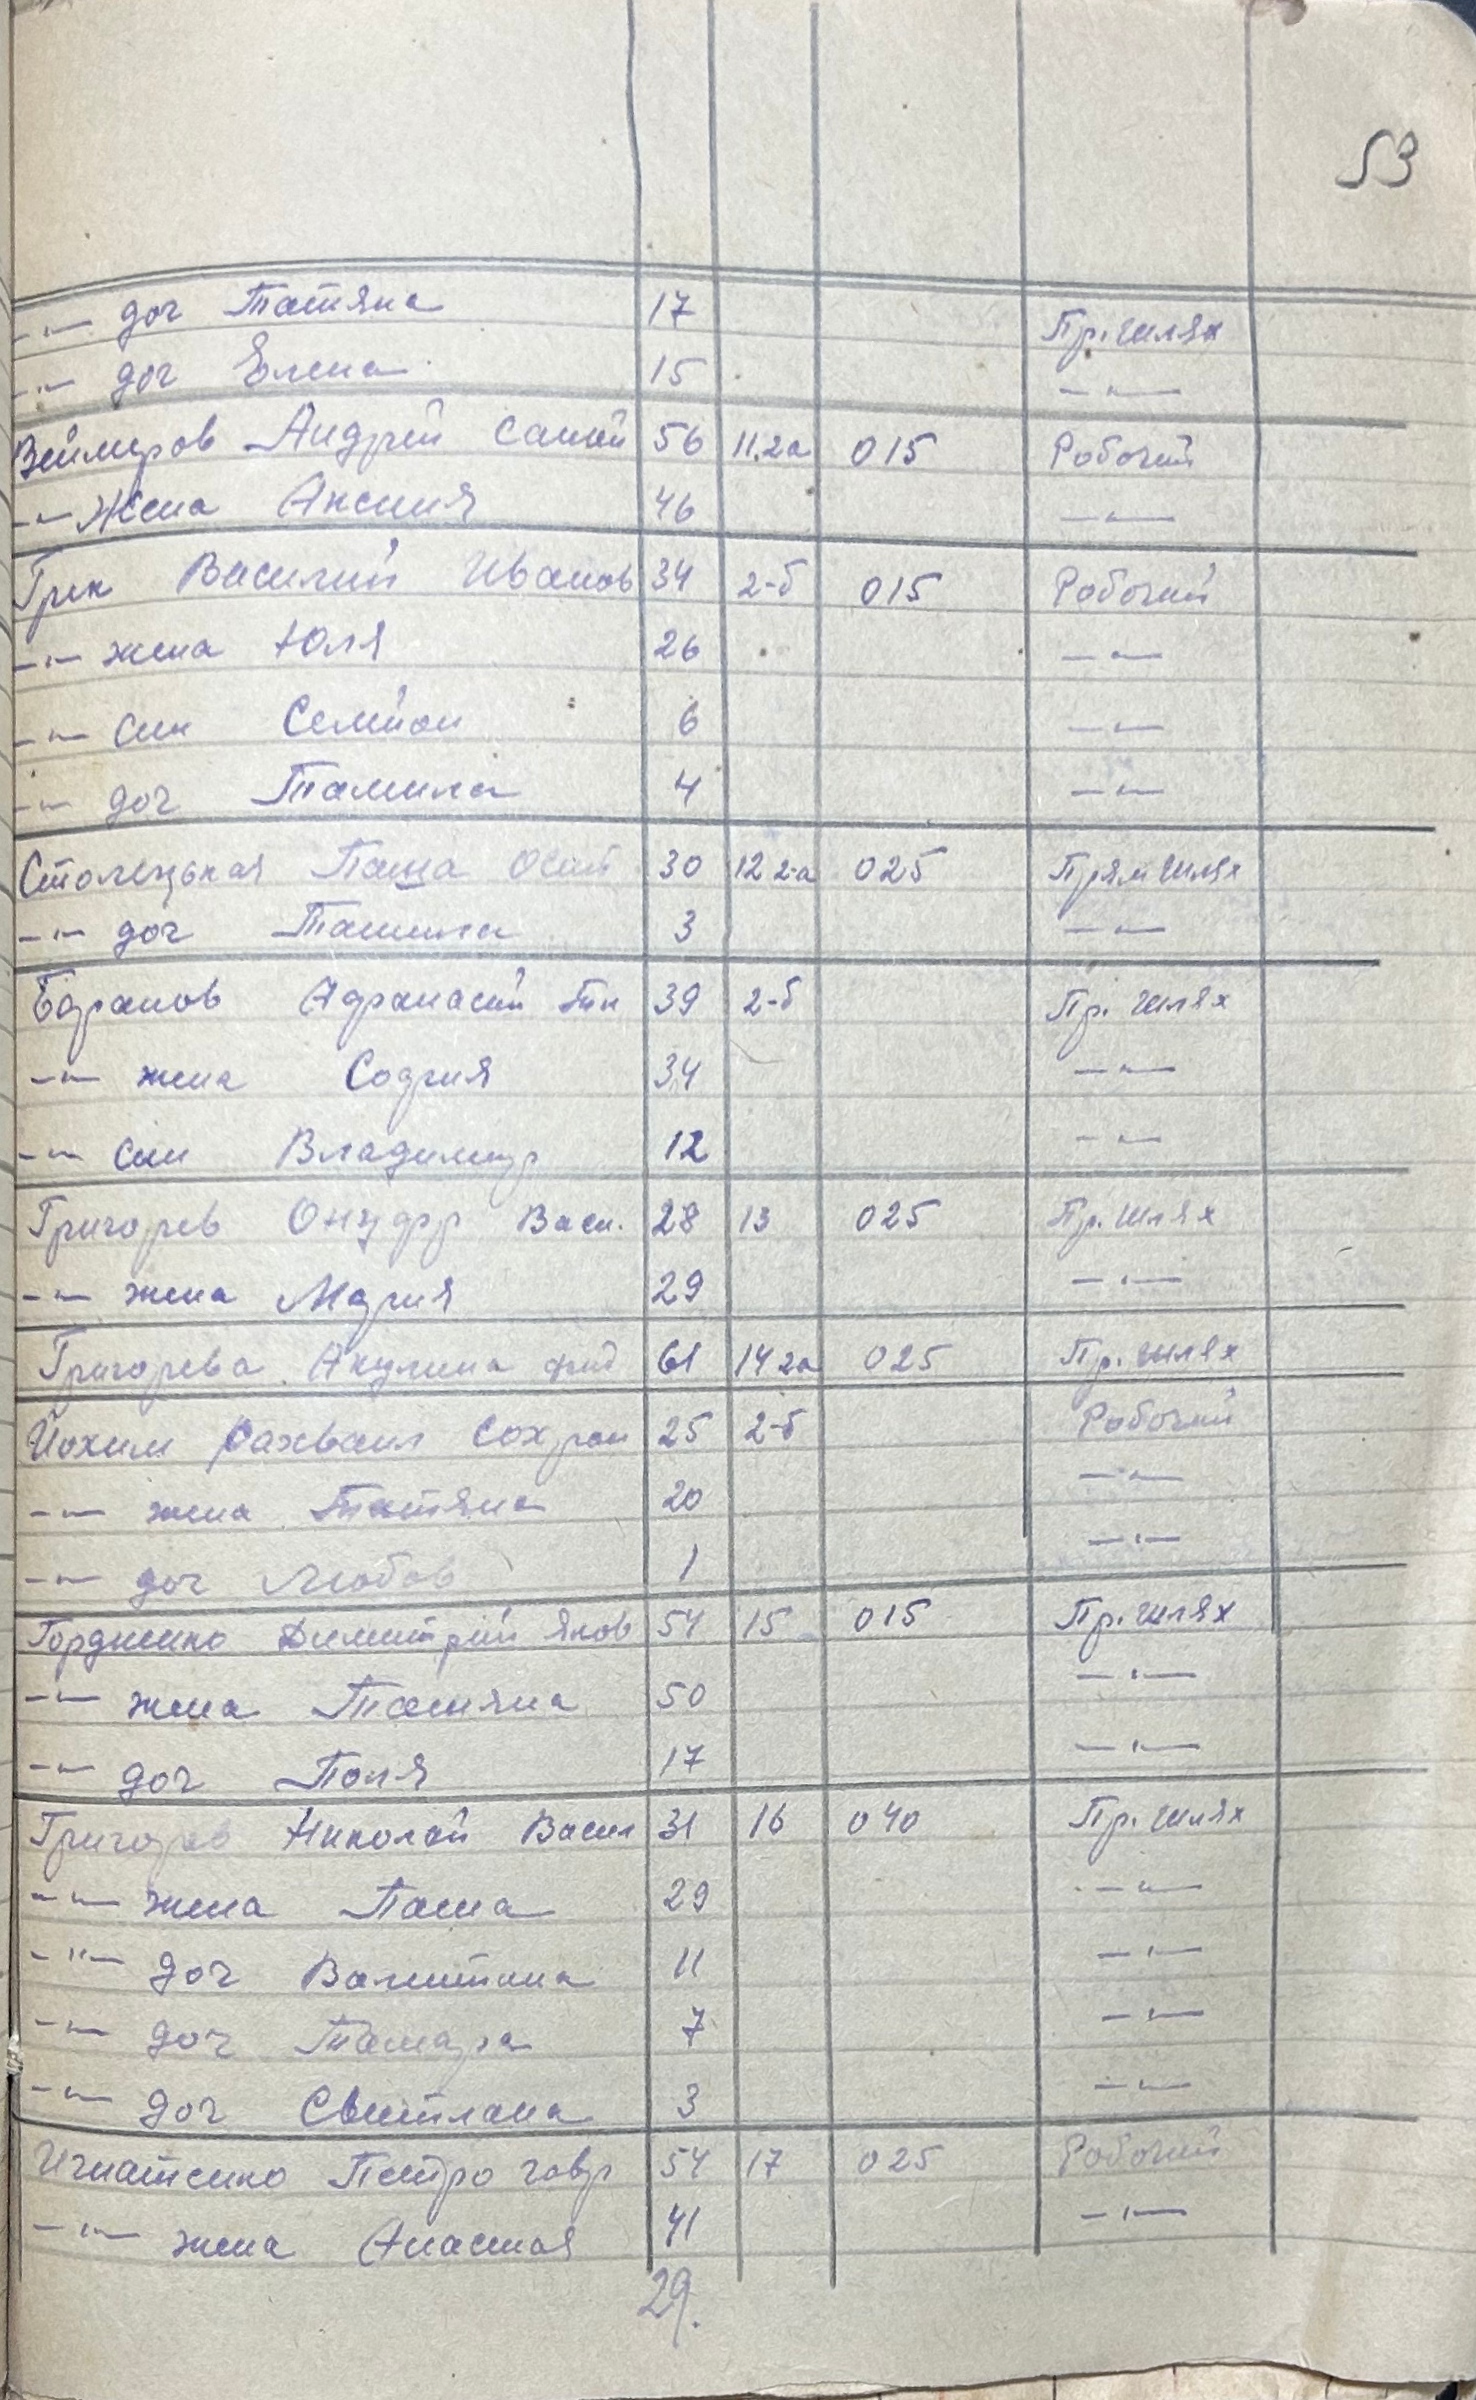 53
-"- доч Татяна 17 Пр. шлях
-"- доч Елена 15 -"-
Веймеров Андрей 56 11.2а 015 Робочий
-"- Жена Аксиния 46 -"-
Грек Василий Иванов 34 2-б 015 Робочий
-"- жена Юля 26 -"-
-"- син Семион 6 -"-
-"- доч Тамила 4 -"-
Столецькая Паша Осип 30 12 2-а 025 Прям шлях
-"- доч Тамила 3 -"-
Баранов Афанасий 39 2-б Пр. шлях
-"- жена София 34 -"-
-"- син Владимир 12 -"-
Григорев Онуфр Васи. 28 13 025 Пр. шлях
-"- жена Мария 29 -"-
Григорева Акулина 61 14 2а 025 Пр. шлях
Йохим Сохрон 25 2-б Робочий
-"- жена Татяна 20 -"-
-"- доч Любов 1 -"-
Гордиенко Димитрий Яков 54 15 015 Пр. шлях
-"- жена Татяна 50 -"-
-"- доч Поля 17 -"-
Григорев Николай Васил 31 16 040 Пр. шлях
-"- жена Паша 29 -"-
-"- доч Валинтина 11 -"-
-"- доч Тамара 7 -"-
-"- доч Свитлана 3 -"-
Игнатенко Петро Гавр 54 17 025 Робочий
-"- жена Анастая 41 -"-
29.